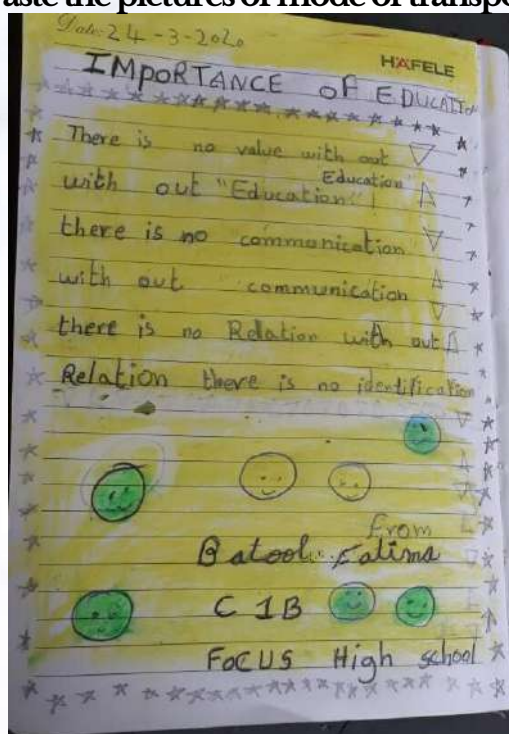 aste the pictures of mode of transpo
Date: 24-3-2020
HAFELE
IMpoRTANCE oF EDUCATION
There is no value with out
Education
with out "Education"!
there is no communication
with out communication
there is no Relation with out
Relation there is no identification
From
Batool Fatima
C 1B
FoCUS High school